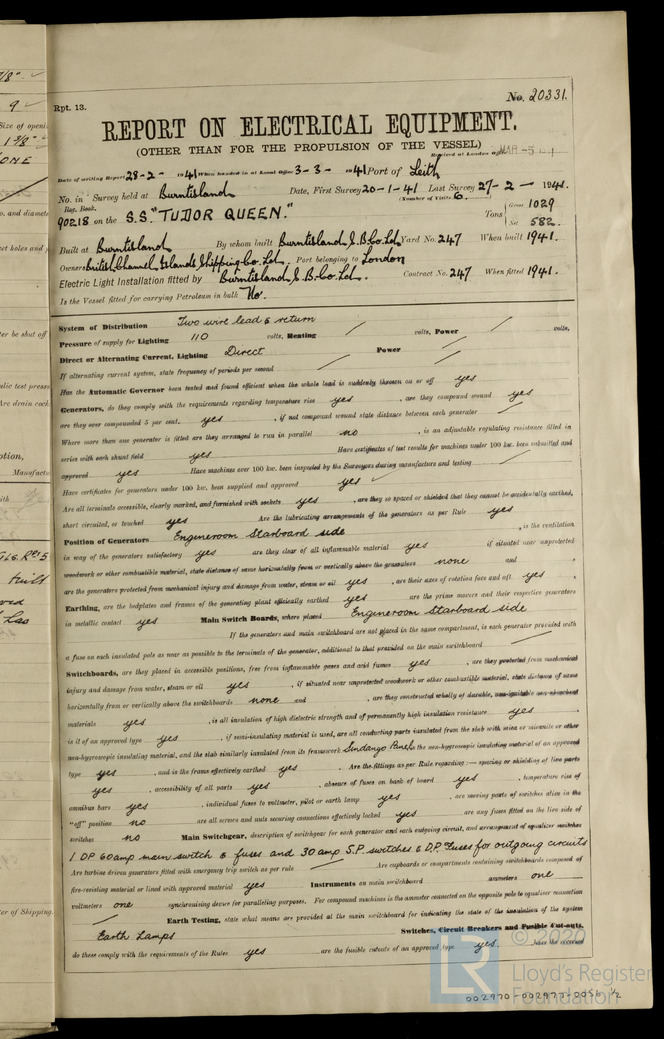 No. 20331.
Rpt. 13.
REPORT ON ELECTRICAL EQUIPMENT.
(OTHER THAN FOR THE PROPULSION OF THE VESSEL)
Received at London office MAR -5 1941
Date of writing Report 28-2- 1941 When handed in at Local Office 3-3- 1941 Port of Leith
No. in Survey held at Burntisland Date, First Survey 20-1-41 Last Survey 27-2- 1941.
Reg. Book. (Number of Visits 6.
90218 on the S.S. "TUDOR QUEEN." Tons Gross 1029 Net 582.
Built at Burntisland By whom built Burntisland S.B.Co.Ld Yard No. 247 When built 1941.
Owners British Channel Islands Shipping Co. Ld. Port belonging to London
Electric Light Installation fitted by Burntisland S.B.Co.Ld. Contract No. 247 When fitted 1941.
Is the Vessel fitted for carrying Petroleum in bulk No.
System of Distribution Two wire lead & return
Pressure of supply for Lighting 110 volts, Heating / volts, Power / volts,
Direct or Alternating Current, Lighting Direct Power /
If alternating current system, state frequency of periods per second /
Has the Automatic Governor been tested and found efficient when the whole load is suddenly thrown on or off yes
Generators, do they comply with the requirements regarding temperature rise yes, are they compound wound yes
are they over compounded 5 per cent. yes, if not compound wound state distance between each generator /
Where more than one generator is fitted are they arranged to run in parallel no, is an adjustable regulating resistance fitted in
series with each shunt field yes Have certificates of test results for machines under 100 kw. been submitted and
approved yes Have machines over 100 kw. been inspected by the Surveyors during manufacture and testing /
Have certificates for generators under 100 kw. been supplied and approved yes ✓
Are all terminals accessible, clearly marked, and furnished with sockets yes, are they so spaced or shielded that they cannot be accidentally earthed,
short circuited, or touched yes Are the lubricating arrangements of the generators as per Rule yes
Position of Generators Engineroom Starboard side, is the ventilation
in way of the generators satisfactory yes are they clear of all inflammable material yes if situated near unprotected
woodwork or other combustible material, state distance of same horizontally from or vertically above the generators none and
are the generators protected from mechanical injury and damage from water, steam or oil yes, are their axes of rotation fore and aft yes
Earthing, are the bedplates and frames of the generating plant efficiently earthed yes are the prime movers and their respective generators
in metallic contact yes Main Switch Boards, where placed Engineroom Starboard side
If the generators and main switchboard are not placed in the same compartment, is each generator provided with
a fuse on each insulated pole as near as possible to the terminals of the generator, additional to that provided on the main switchboard /
Switchboards, are they placed in accessible positions, free from inflammable gases and acid fumes yes, are they protected from mechanical
injury and damage from water, steam or oil yes, if situated near unprotected woodwork or other combustible material, state distance of same
horizontally from or vertically above the switchboards none and, are they constructed wholly of durable, non-ignitable non-absorbent
materials yes, is all insulation of high dielectric strength and of permanently high insulation resistance yes
is it of an approved type yes, if semi-insulating material is used, are all conducting parts insulated from the slab with mica or micanite or other
non-hygroscopic insulating material, and the slab similarly insulated from its framework Sindanyo Panels, the non-hygroscopic insulating material of an approved
type yes, and is the frame effectively earthed yes. Are the fittings as per Rule regarding:— spacing or shielding of live parts
yes, accessibility of all parts yes, absence of fuses on back of board yes, temperature rise of
omnibus bars yes, individual fuses to voltmeter, pilot or earth lamp yes, are moving parts of switches alive in the
"off" position no are all screws and nuts securing connections effectively locked yes are any fuses fitted on the live side of
switches no Main Switchgear, description of switchgear for each generator and each outgoing circuit, and arrangement of equalizer switches
1 DP 60amp main switch & fuses and 30amp S.P. switches & D.P. fuses for outgoing circuits
Are turbine driven generators fitted with emergency trip switch as per rule / Are cupboards or compartments containing switchboards composed of
fire-resisting material or lined with approved material yes Instruments on main switchboard ammeters one
voltmeters one synchronising device for paralleling purposes. For compound machines is the ammeter connected on the opposite pole to equaliser connection
/ Earth Testing, state what means are provided at the main switchboard for indicating the state of the insulation of the system
Earth Lamps Switches, Circuit Breakers and Fusible Cut-outs,
do these comply with the requirements of the Rules yes are the fusible cutouts of an approved type yes. have the reversed
© 2020
LR
Lloyd's Register
Foundation
002970-002977-0056 1/2